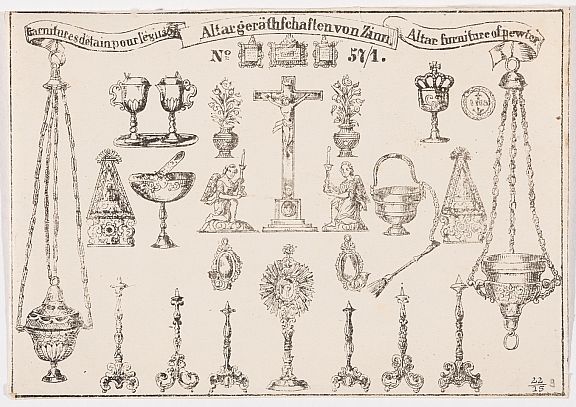 Garnitures d'etain pour l'église.
Altargeräthschaften von Zinn.
Altar furniture of pewter
No. 57/1.
22
15